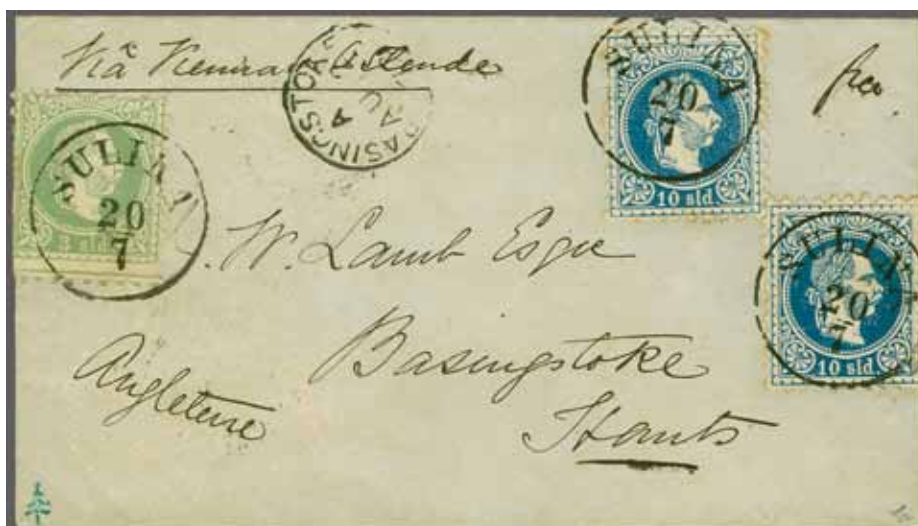 Viâ Vienna Ostende
BASINGSTOKE
A
AU
SULINA
20
7
10 sld
fco.
SULINA
20
7
3 sld
W. Lamb Esqre
SULINA
20
7
10 sld
Basingstoke
Angleterre
Hants